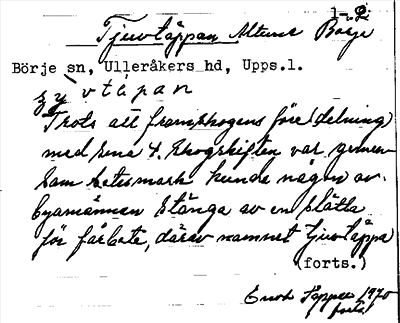 Tjuvtäppan Altuna Börje
Börje sn, Ulleråkers hd, Upps.l.
vtäpan
Trots att framskogens före (delning)
med sina 4. skogskiften var gemen-
sam betesmark kunde någon av
byamännen stänga av en slätta
för fårbete, därav namnet tjuvtäppa
(forts.)
1970
forts.